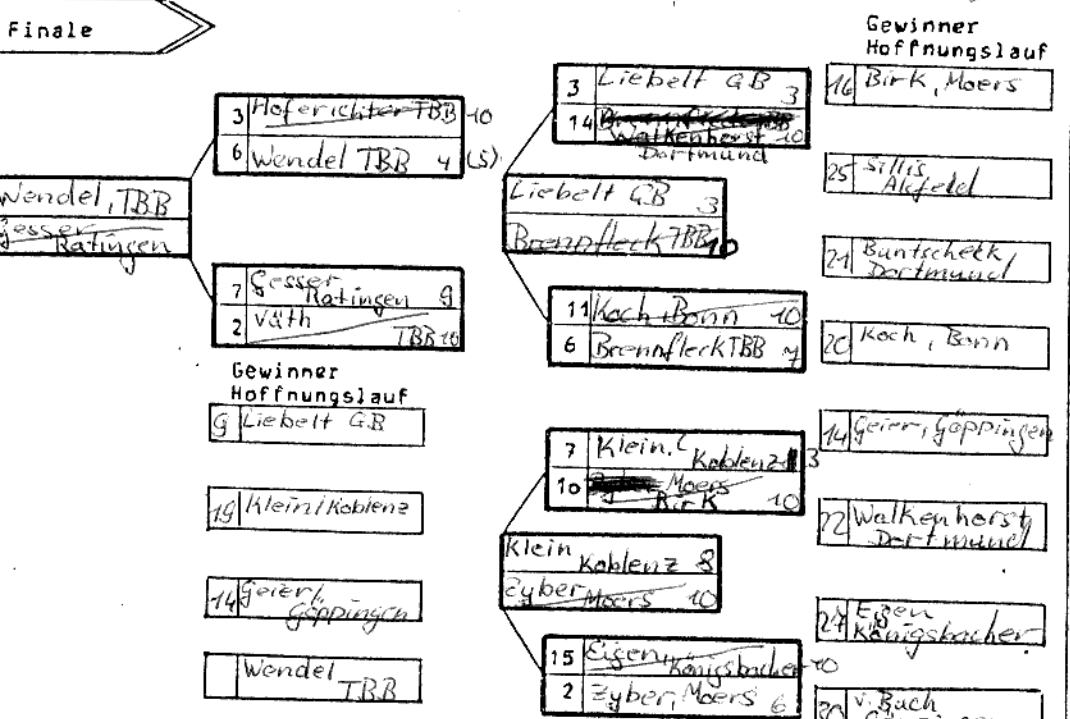 Finale
3 Hoferichter TBB 10
6 Wendel TBB 4 (5)
Wendel, TBB
Gesser
Ratingen
7 Gesser
Ratingen 9
2 Väth
TBB 10
Gewinner
Hoffnungslauf
9 Liebelt GB
19 Klein/Koblenz
14 Geier/
Göppingen
Wendel
TBB
3 Liebelt GB 3
14
Walkenhorst 10
Dortmund
Liebelt GB 3
Brennfleck TBB 10
11 Koch, Bonn 10
6 Brennfleck TBB 7
7 Klein,
Koblenz 3
10 Moers
Birk 10
Klein
Koblenz 8
Zyber
Moers 10
15 Eigen,
Königsbacher 10
2 Zyber, Moers 6
Gewinner
Hoffnungslauf
16 Birk, Moers
25 Sillis
Alsfeld
21 Buntscheck
Dortmund
20 Koch, Bonn
14 Geier, Göppingen
22 Walkenhorst
Dortmund
27 Eigen
Königsbacher
v. Buch